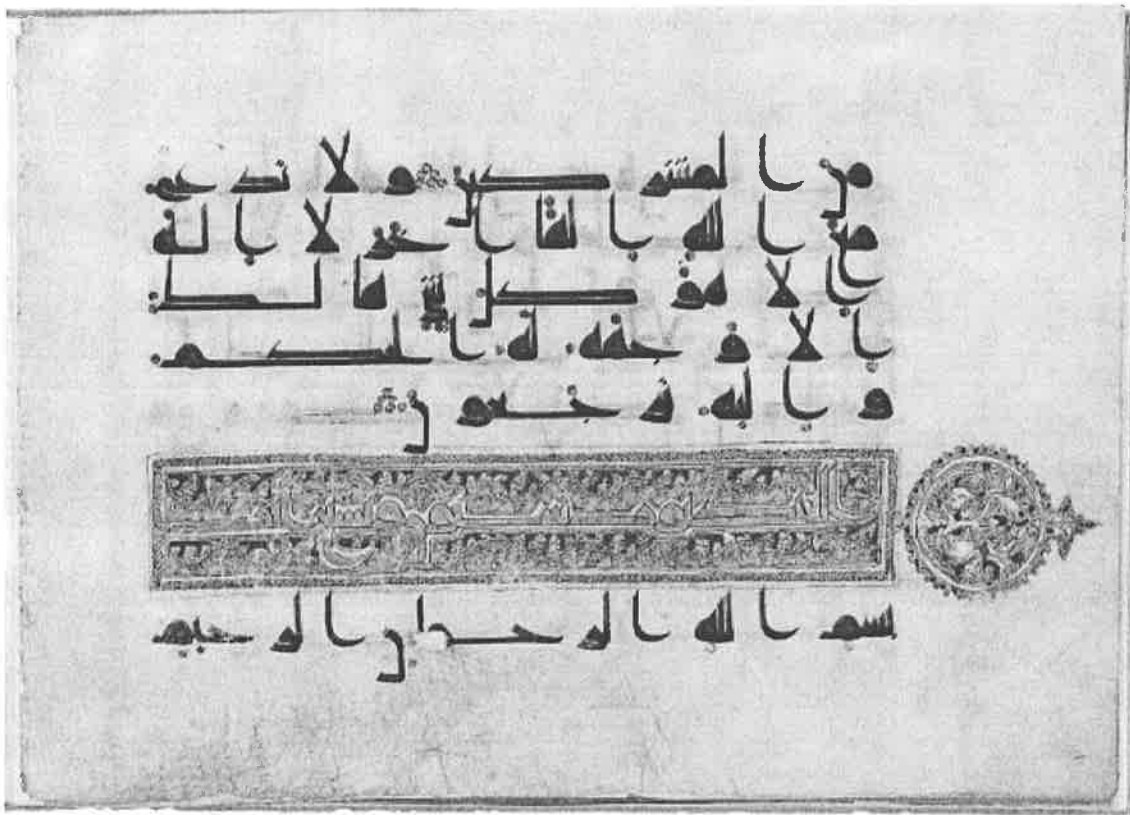 من المشركين ولا تدع
مع الله الها اخر لا اله
الا هو كل شي هالك
الا وجهه له الحكم
واليه ترجعون
بسم الله الرحمن الرحيم